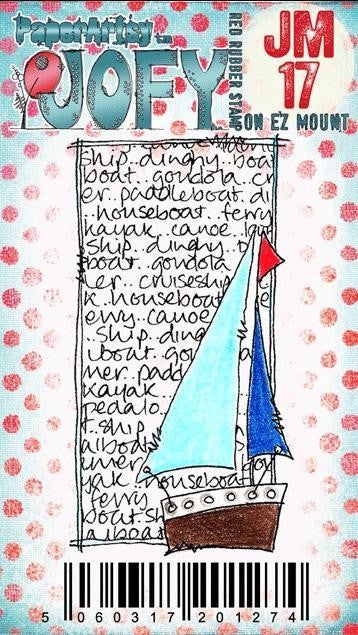 PaperArtsy™
JOFY
RED RUBBER STAMP
JM
17
ON EZ MOUNT
ship..dinghy..boa
boat..gondola..cr
er..paddleboat..di
..houseboat..ferry
kayak..canoe..
ship..dinghy..
boat..gondola
er..cruiseship
k..houseboat
erry..canoe
..ship..ding
boat..go
mer..padd
kayak..
pedalo..
t..ship
ailboat
umer
yak..houseboat
ferry
boat..sh
ailboat
5 060317 201274